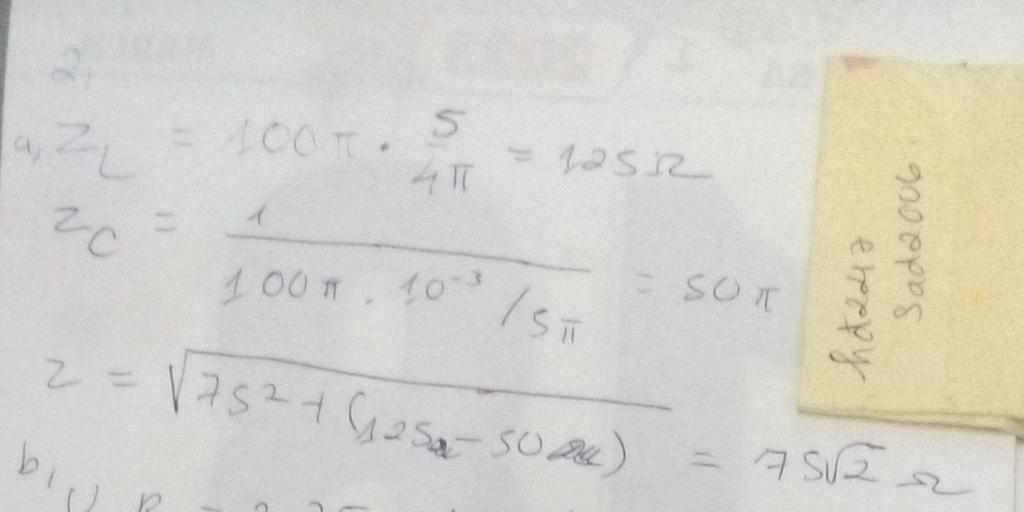 2,
a, Z_L = 100π · 5/4π = 125Ω
Z_C = 1/(100π · 10⁻³/5π) = 50π
Z = √(75² + (125 - 50)) = 75√2 Ω
b,
hd2247
Sad2006.